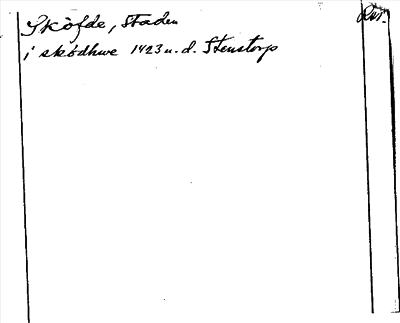 Sköfde, Staden
i skødhwe 1423 u. d. Stenstorp